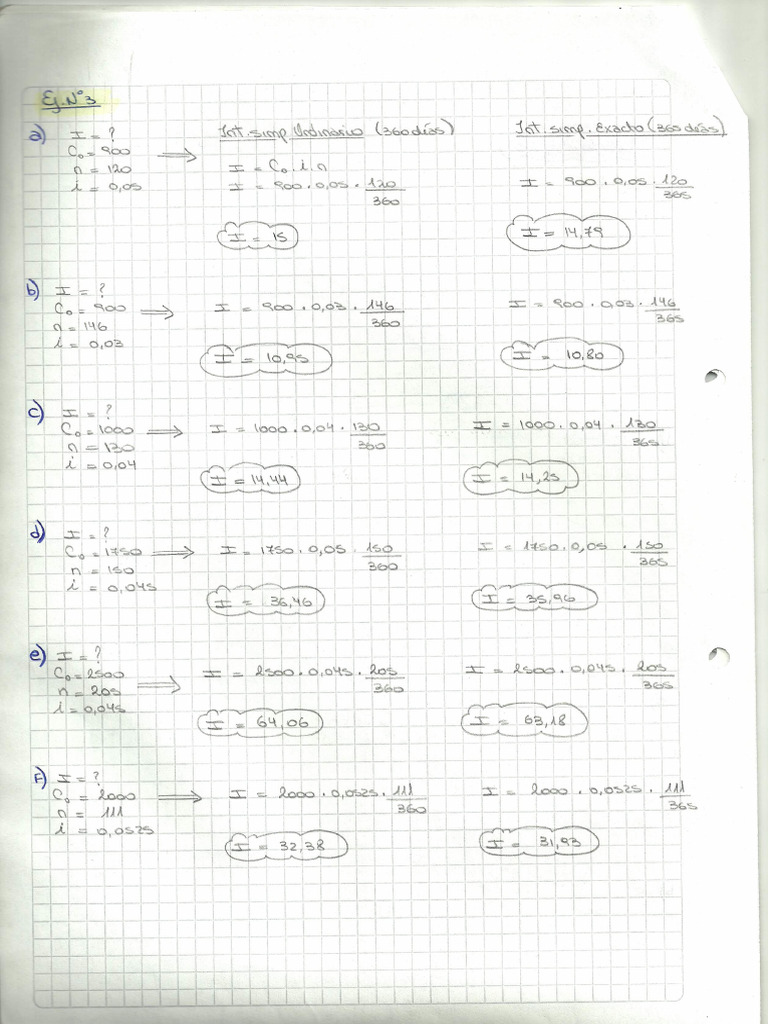 Ej. Nº 3
Int. simp. Ordinario (360 días)
Int. simp. Exacto (360 días)
a) I = ?
C₀ = 900
n = 120
i = 0,05
I = C₀ . i . n
I = 900 . 0,05 . 120/360
I = 15
I = 900 . 0,05 . 120/365
I = 14,79
b) I = ?
C₀ = 900
n = 146
i = 0,03
I = 900 . 0,03 . 146/360
I = 10,95
I = 900 . 0,03 . 146/365
I = 10,80
c) I = ?
C₀ = 1000
n = 130
i = 0,04
I = 1000 . 0,04 . 130/360
I = 14,44
I = 1000 . 0,04 . 130/365
I = 14,25
d) I = ?
C₀ = 1750
n = 150
i = 0,045
I = 1750 . 0,05 . 150/360
I = 36,46
I = 1750 . 0,05 . 150/365
I = 35,96
e) I = ?
C₀ = 2500
n = 205
i = 0,045
I = 2500 . 0,045 . 205/360
I = 64,06
I = 2500 . 0,045 . 205/365
I = 63,18
F) I = ?
C₀ = 2000
n = 111
i = 0,0525
I = 2000 . 0,0525 . 111/360
I = 32,38
I = 2000 . 0,0525 . 111/365
I = 31,93